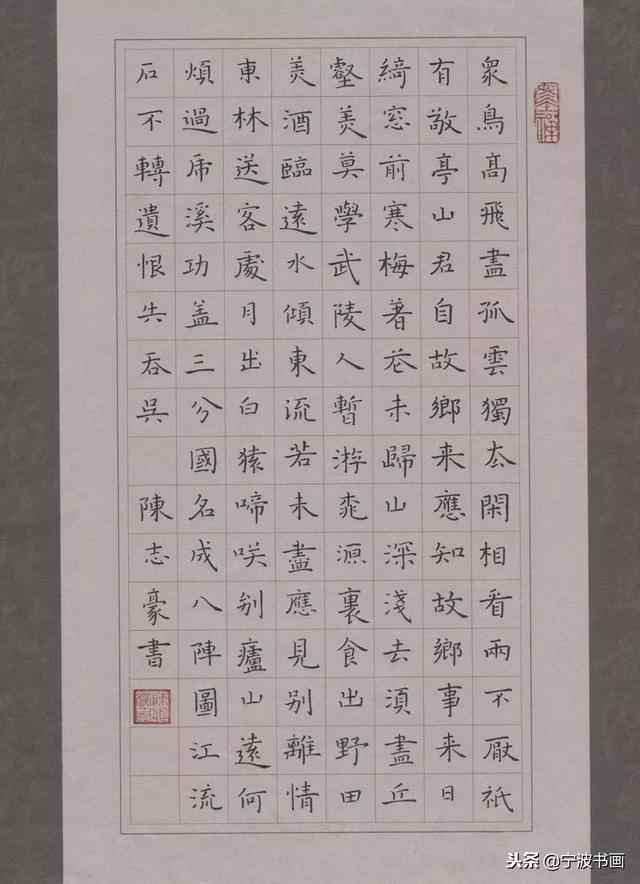 衆鳥高飛盡孤雲獨去閑相看兩不厭祇
有敬亭山君自故鄉来應知故鄉事来日
綺窓前寒梅著花未歸山深淺去須盡丘
壑美莫學武陵人暫游桃源裏食出野田
美酒臨遠水傾東流若未盡應見别離情
東林送客處月出白猿啼咲别廬山遠何
煩過虎溪功盖三分國名成八陣圖江流
石不轉遺恨失吞吳 陳志豪書
头条@宁波书画